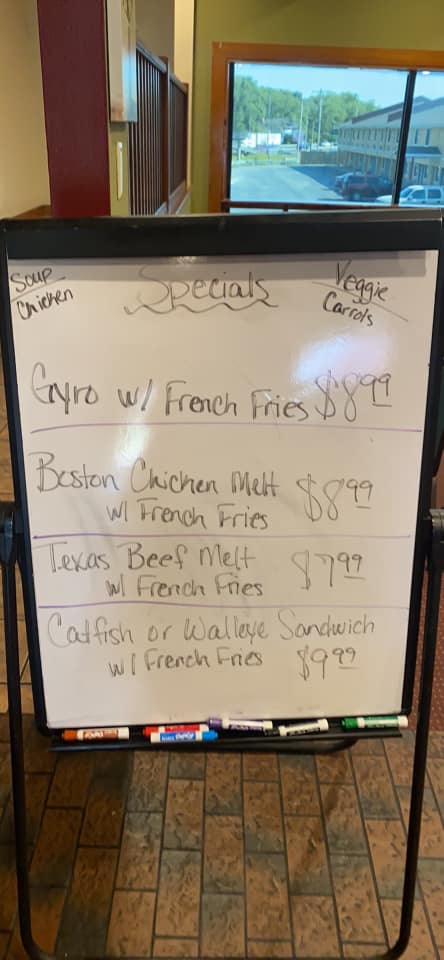 Soup
Chicken
Specials
Veggie
Carrots
Gyro w/ French Fries $8.99
Boston Chicken Melt $8.99
w/ French Fries
Texas Beef Melt $7.99
w/ French Fries
Catfish or Walleye Sandwich
w/ French Fries $9.99